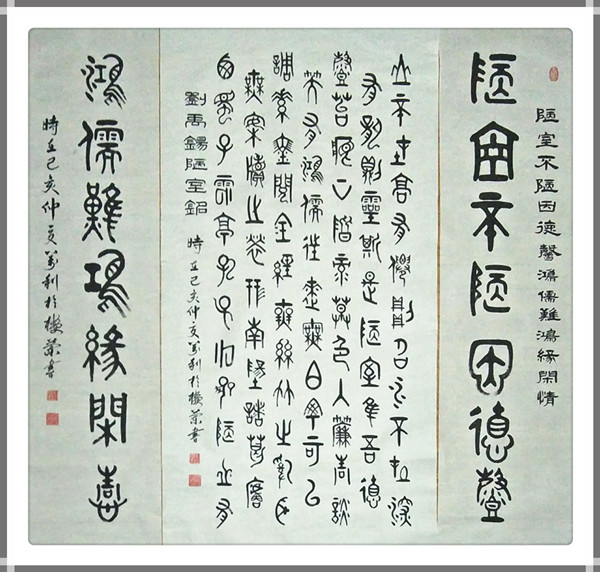 陋室不陋因德馨鴻儒難鴻緣閑情
陋室不陋因德馨
山不在高有僊則名水不在深
有龍則靈斯是陋室惟吾德
馨苔痕上階綠草色入簾青談
笑有鴻儒往來無白丁可以
調素琴閱金經無絲竹之亂耳
無案牘之勞形南陽諸葛廬
西蜀子雲亭孔子云何陋之有
劉禹錫陋室銘 時在己亥仲夏萬利於樸榮書
鴻儒難鴻緣閑
時在己亥仲夏萬利於樸榮書